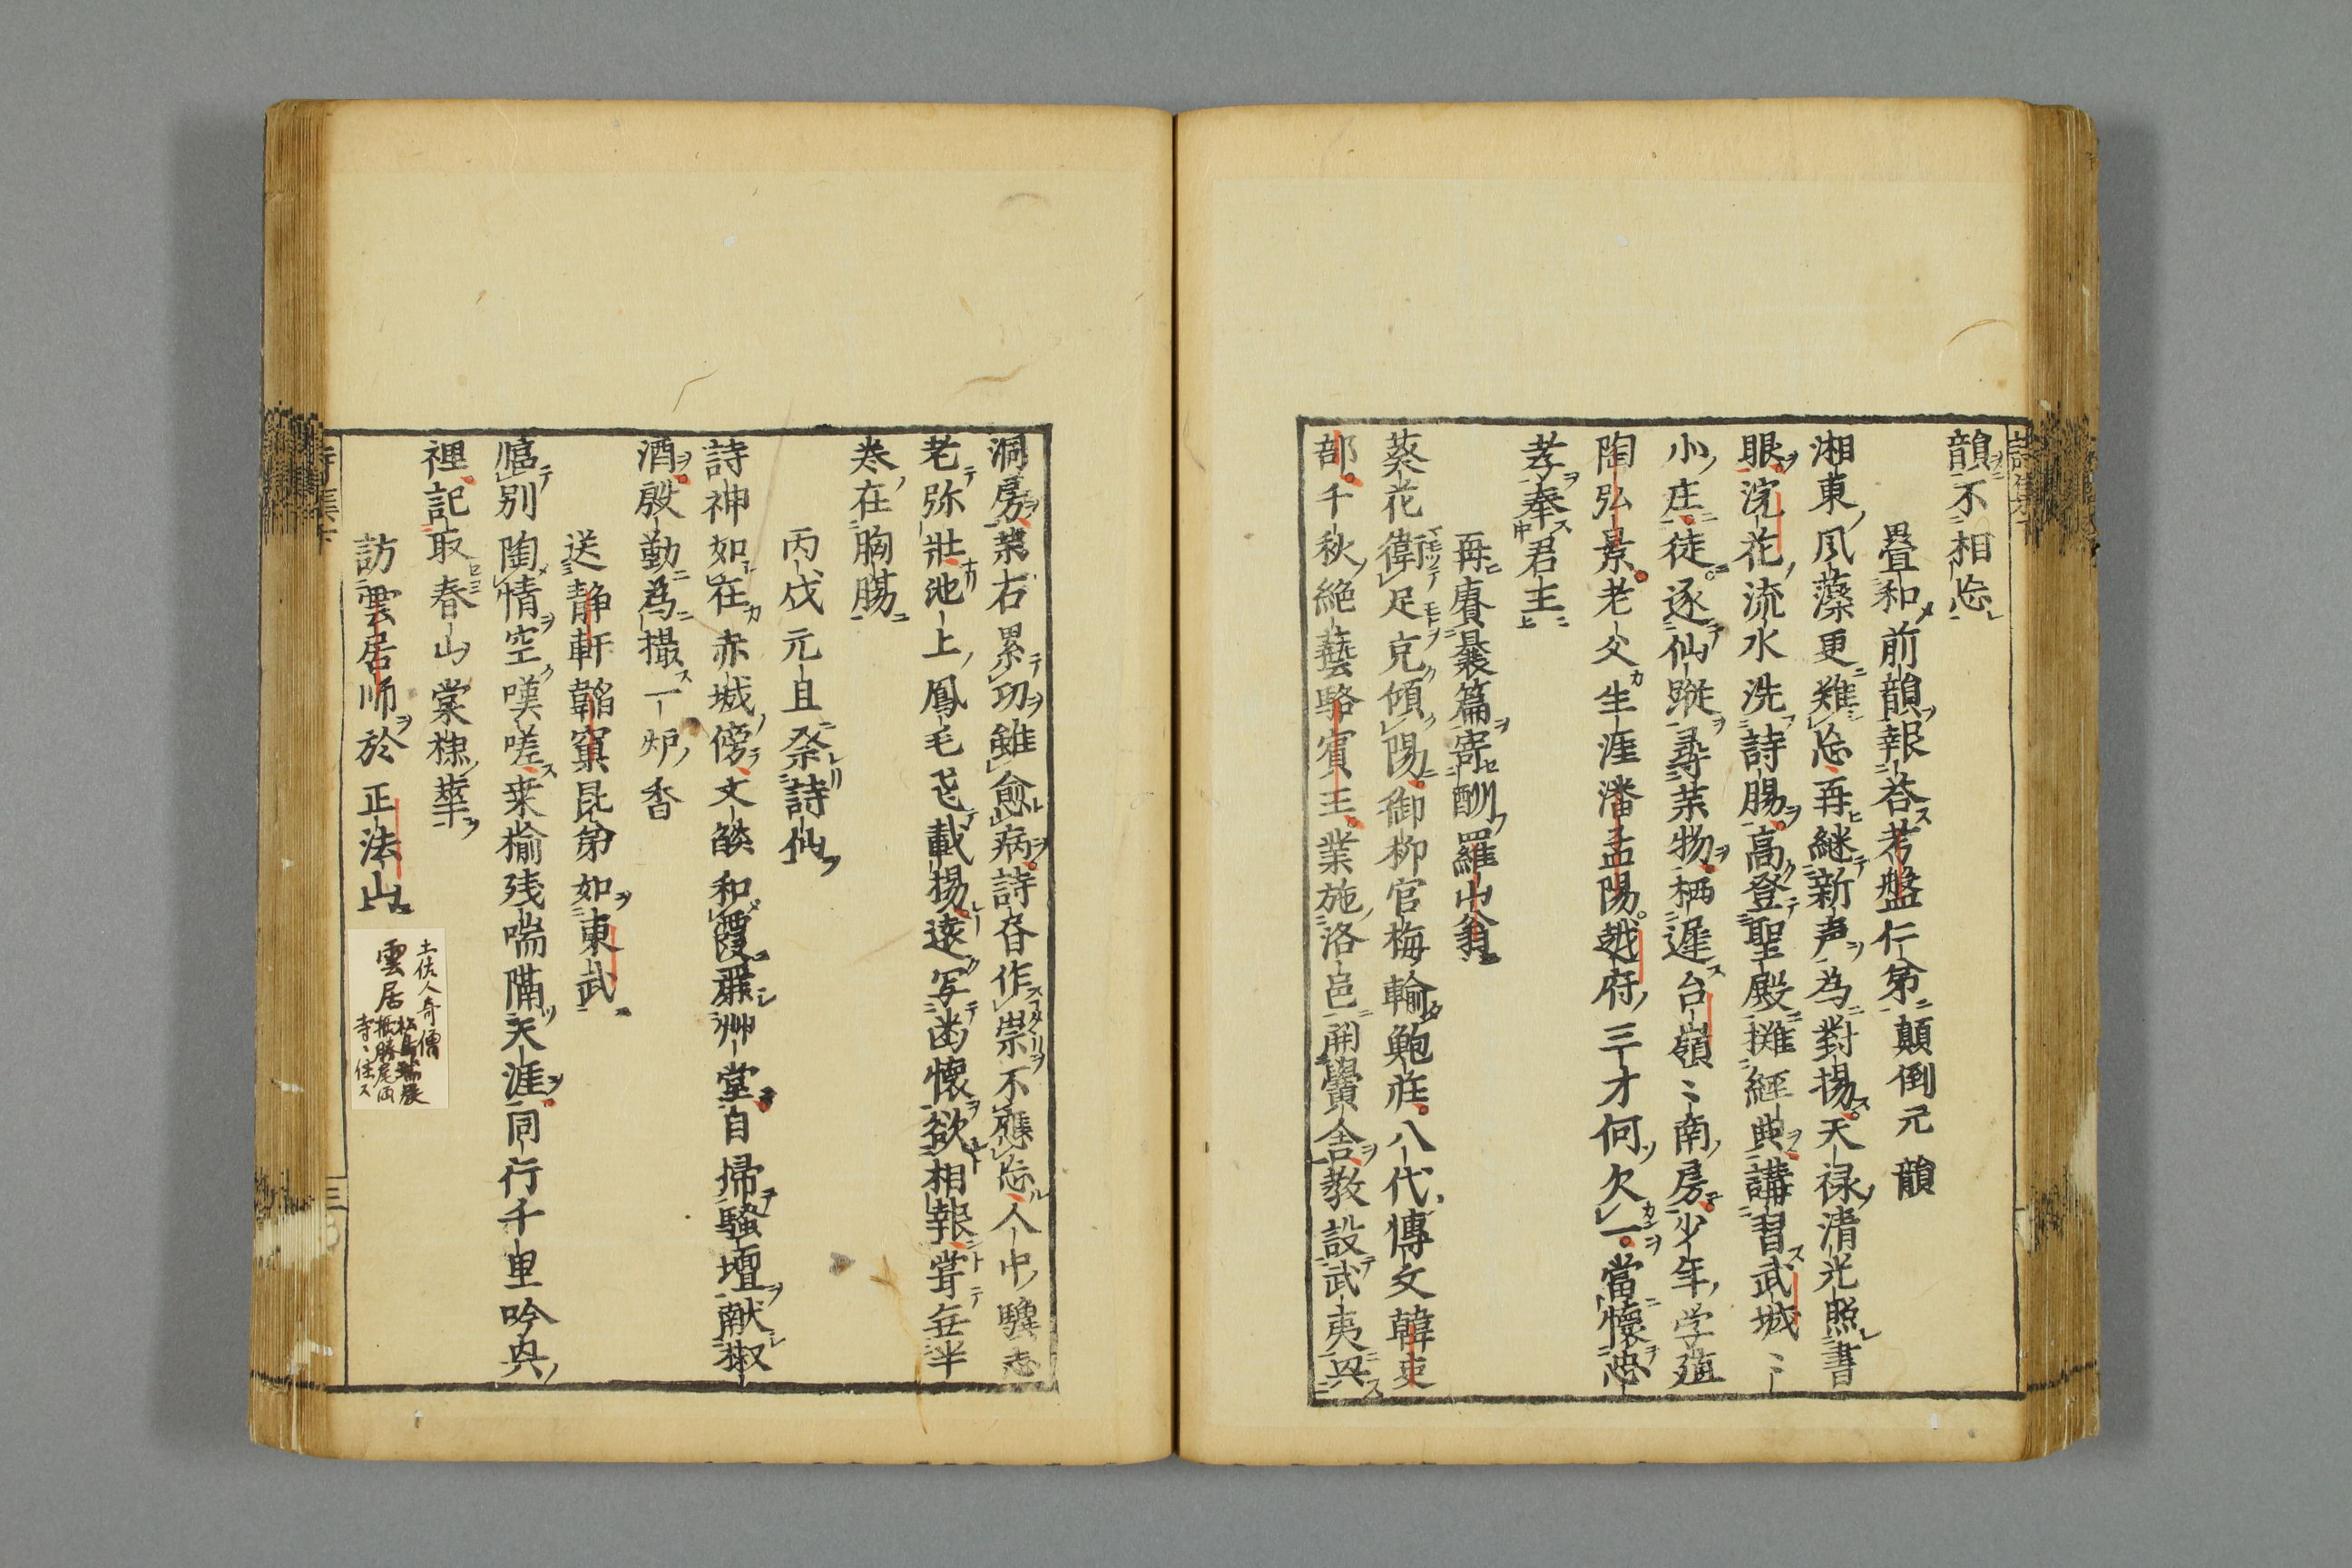 韻不相忘
畳和前韻報答考盤仁弟顛倒元韻
湘東風藻更難忘再継新声為對揚天禄清光照書
眼浣花流水洗詩腸高登聖殿摧經典講習武城〻
小庄徒逐仙蹤尋菜物栖遅台嶺〻南房少年学
陶弘景老父生涯潘孟陽越府三才何欠一當懐忠
孝奉君主
再賡曩篇寄酬羅山翁
葵花衛足克傾陽御柳官梅輸鮑荘八代傳文韓吏
部千秋絶藝駱賓王業施洛邑開黌舎教設武夷與
洞房業右累功雖愈病詩吞作崇不應忘人中驥志
老弥壮池上鳳毛飞載揚遠写歯懐欲相報嘗無半
巻在胸膓
丙戌元旦祭詩仙
詩神如在赤城傍文燄和霞舞艸堂自掃騒壇献椒
酒殷勤為撮一炉香
送静軒韜窠昆弟如東武
偏別陶情空嘆嗟桒榆残喘隔天涯同行千里吟央
裡記取春山棠棣華
訪雲居师於正法山
土佐人奇僧
雲居
松島瑞巌
摂勝尾両
寺ニ住ス